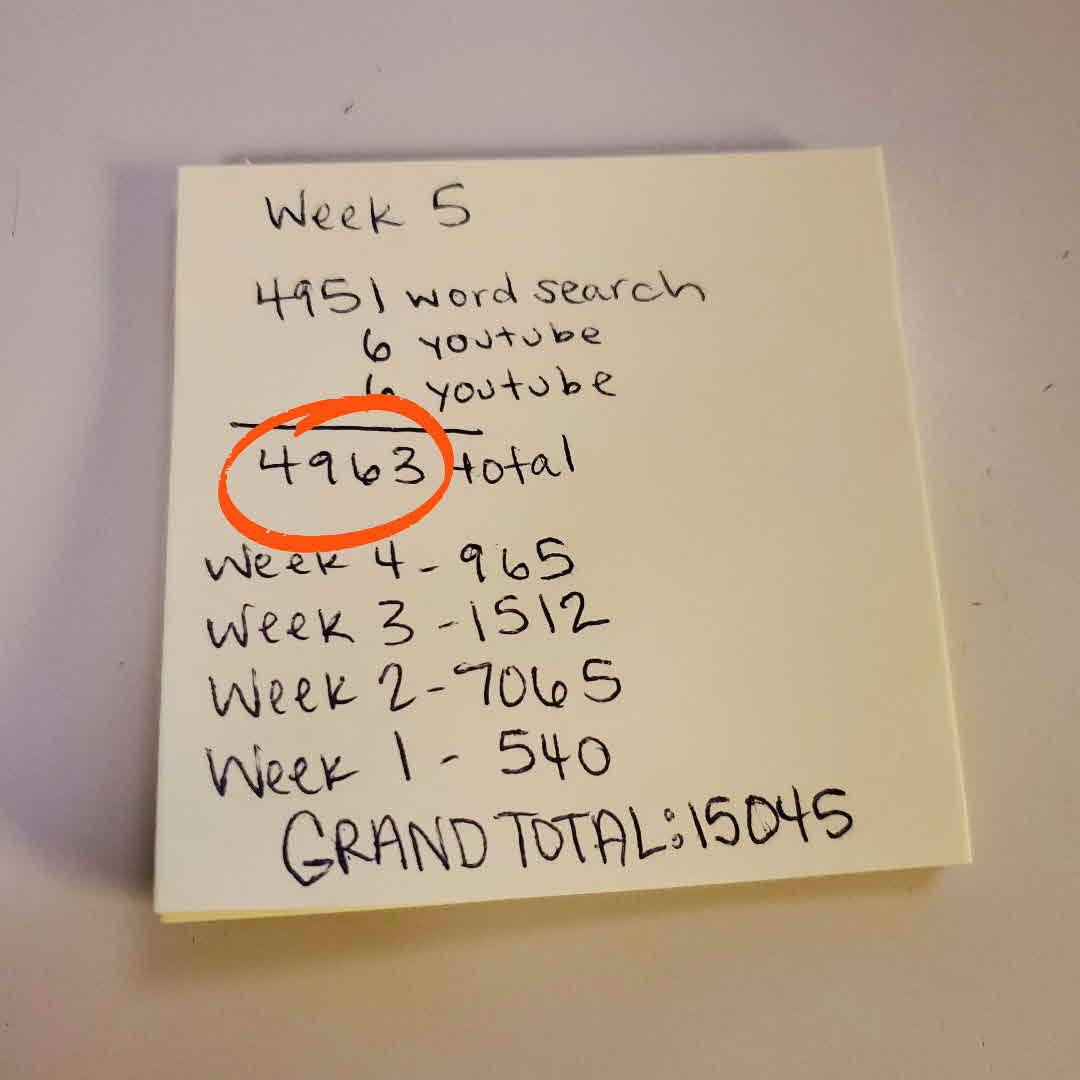 Week 5
4951 word search
6 youtube
6 youtube
4963 total
Week 4 - 965
Week 3 - 1512
Week 2 - 7065
Week 1 - 540
GRAND TOTAL: 15045